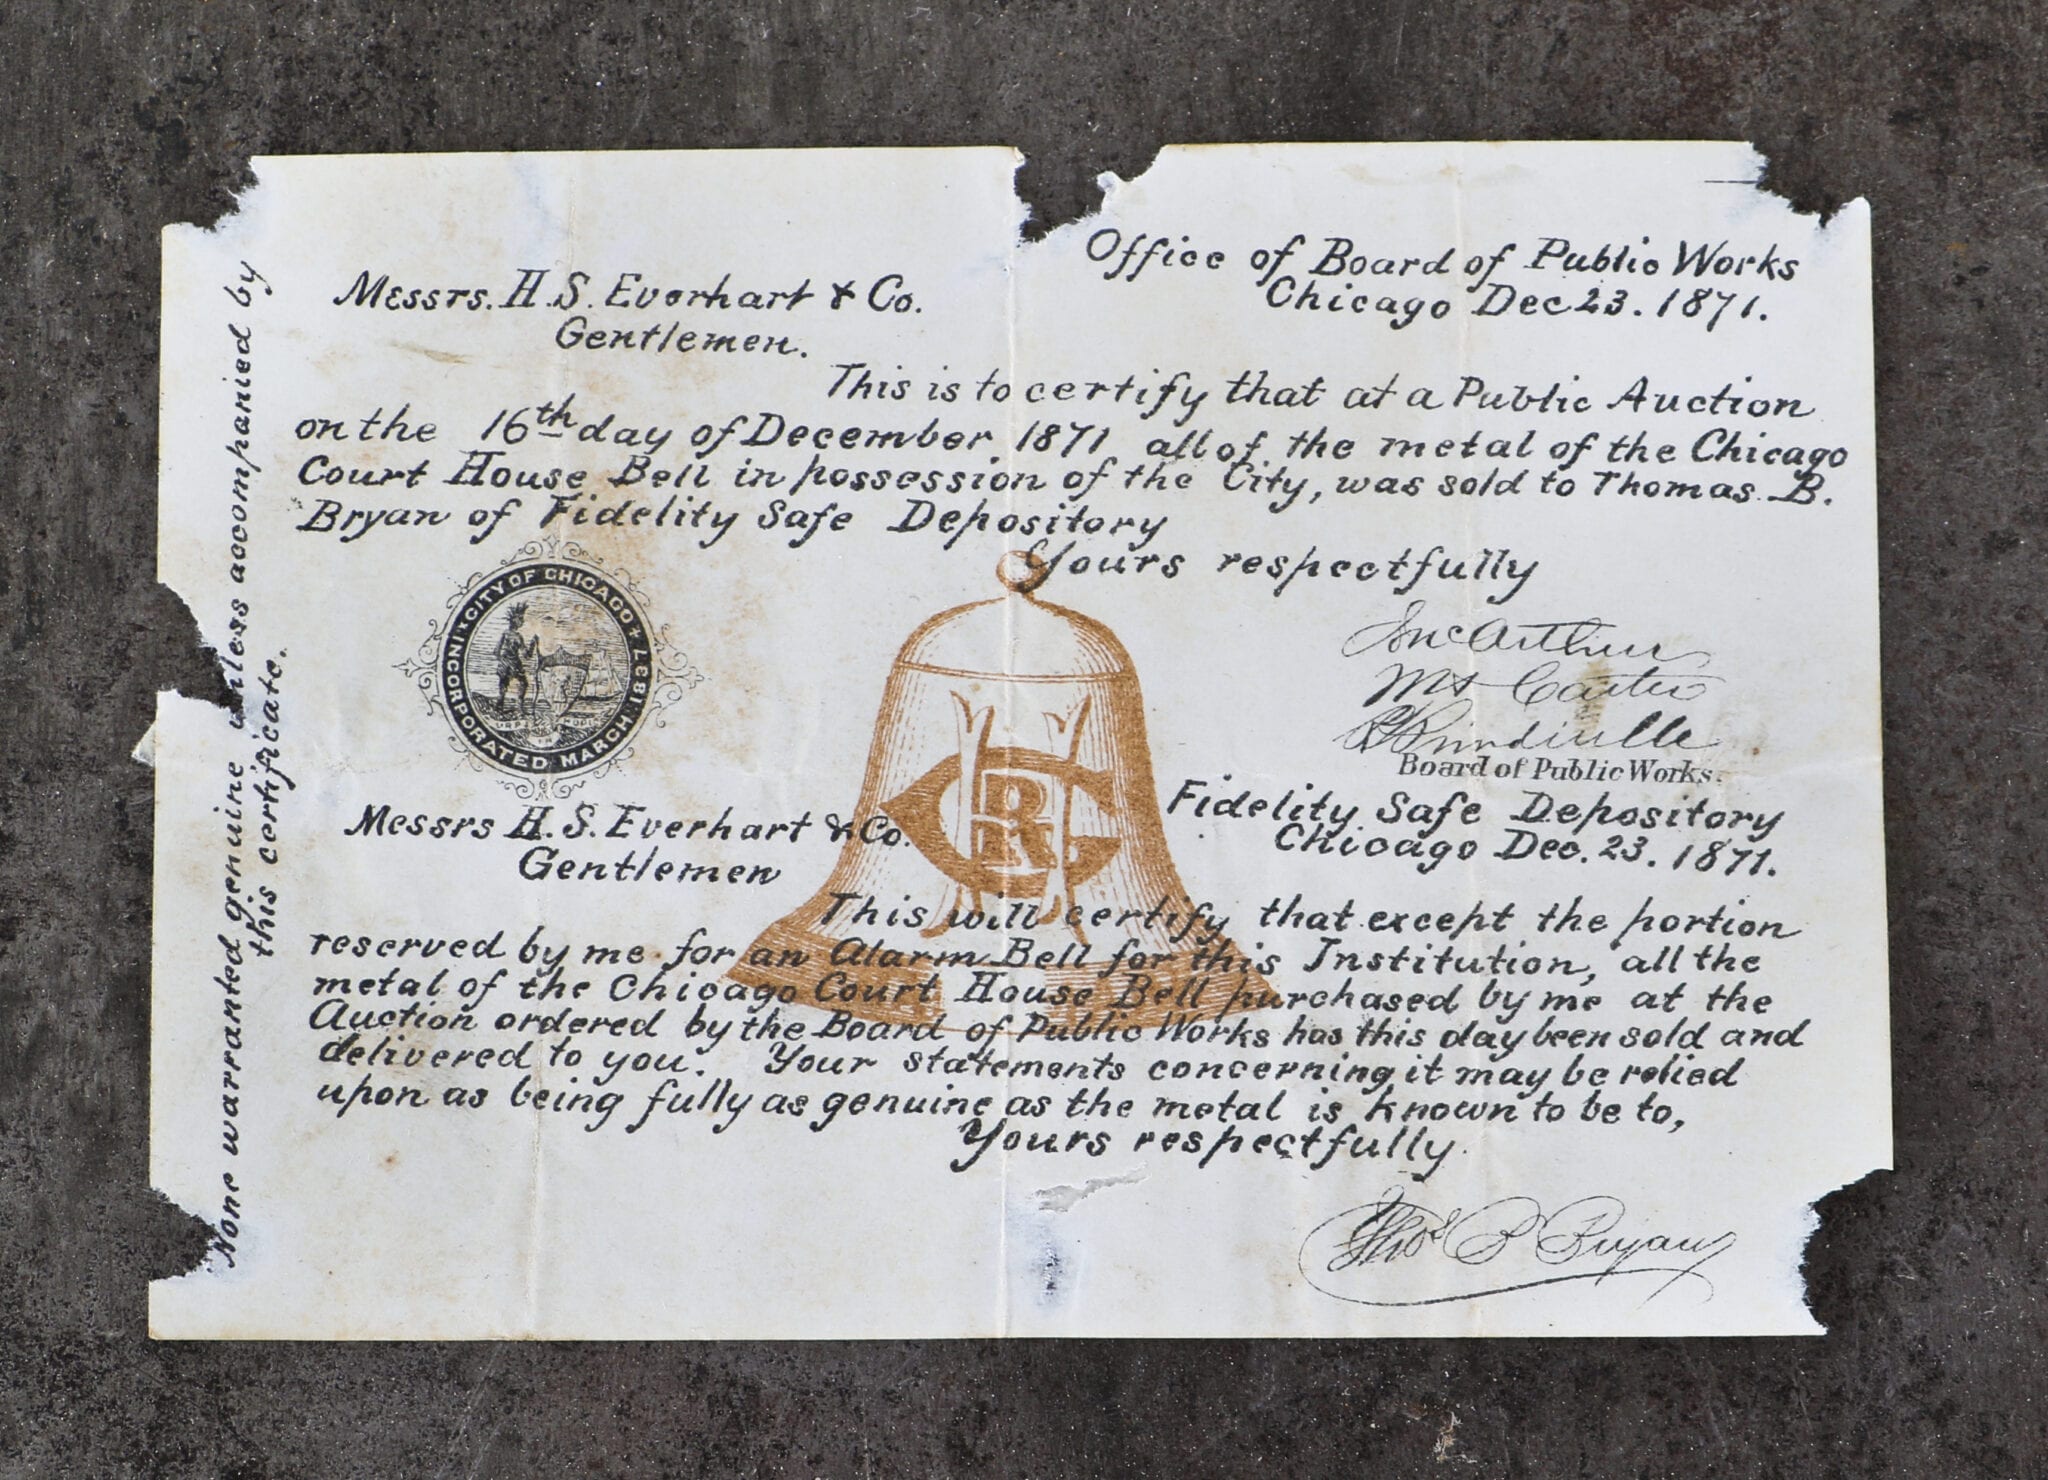 Office of Board of Public Works
Chicago Dec 23. 1871.
Messrs. H. S. Everhart & Co.
Gentlemen.
This is to certify that at a Public Auction
on the 16th day of December 1871 all of the metal of the Chicago
Court House Bell in possession of the City, was sold to Thomas B.
Bryan of Fidelity Safe Depository
Yours respectfully
CITY OF CHICAGO
INCORPORATED MARCH 1837
URBS IN HORTO
McArthur
Board of Public Works.
Fidelity Safe Depository
Chicago Dec. 23. 1871.
Messrs H. S. Everhart & Co.
Gentlemen
This will certify that except the portion
reserved by me for an Alarm Bell for this Institution, all the
metal of the Chicago Court House Bell purchased by me at the
Auction ordered by the Board of Public Works has this day been sold and
delivered to you. Your statements concerning it may be relied
upon as being fully as genuine as the metal is known to be to,
Yours respectfully.
Thos B Bryan
None warranted genuine unless accompanied by
this certificate.